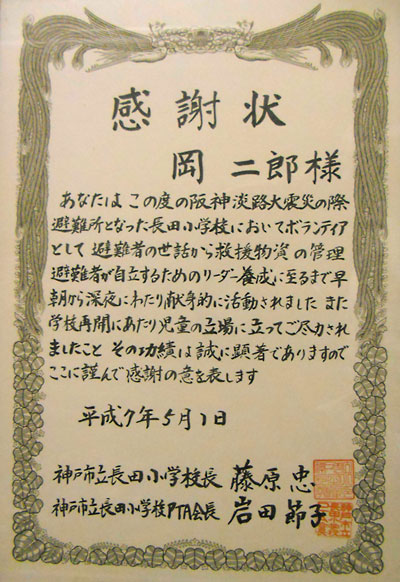 感謝状
岡二郎様
あなたは この度の阪神淡路大震災の際
避難所となった長田小学校においてボランティア
として 避難者の世話から救援物資の管理
避難者が自立するためのリーダー養成に至るまで早
朝から深夜にわたり献身的に活動されました また
学校再開にあたり児童の立場に立ってご尽力され
ましたこと その功績は誠に顕著でありますので
ここに謹んで感謝の意を表します
平成7年5月1日
神戸市立長田小学校長 藤原 忠
神戸市立長田小学校PTA会長 岩田 節子